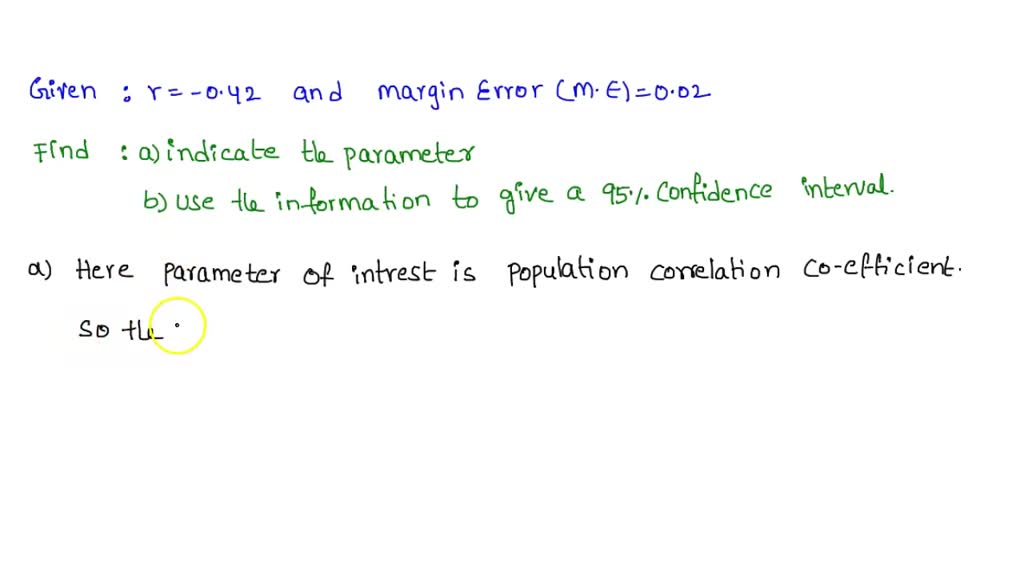 Given : r = -0.42 and margin Error (M.E) = 0.02
Find : a) indicate the parameter
b) use the information to give a 95% confidence interval.
a) Here parameter of intrest is population correlation co-efficient.
so the